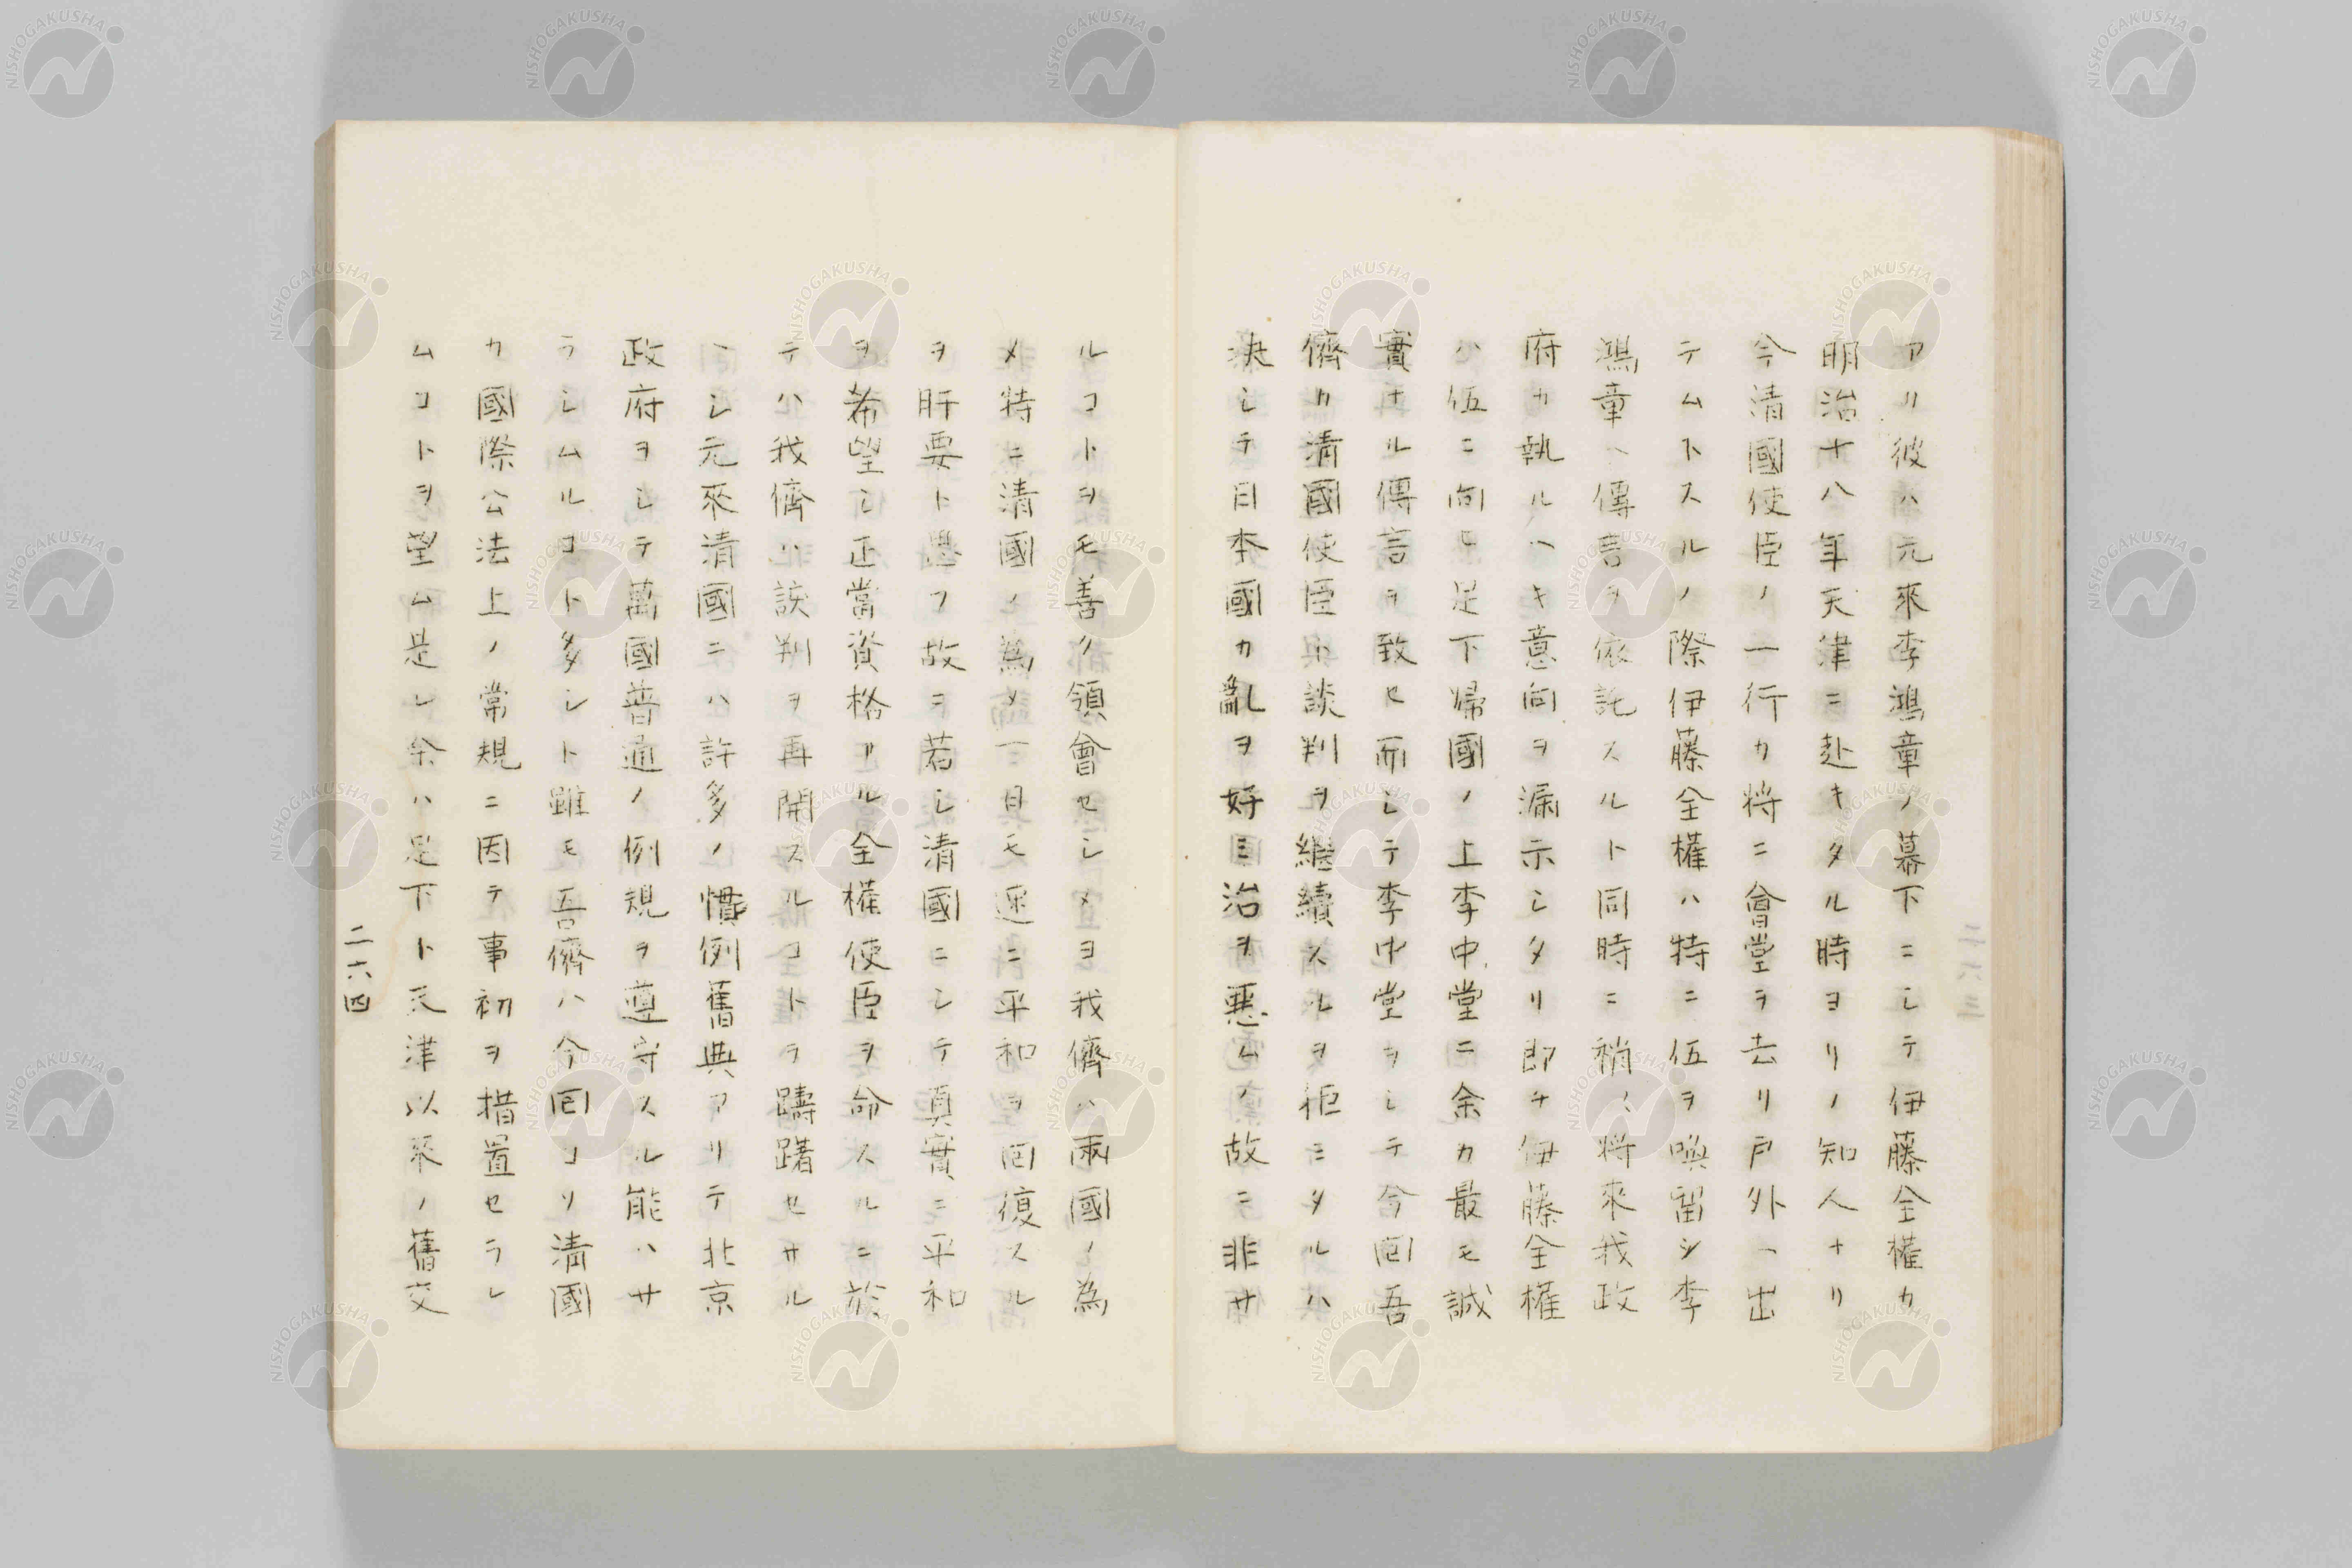 アリ彼ハ元來李鴻章ノ幕下ニシテ伊藤全權カ
明治十八年天津ニ赴キタル時ヨリノ知人ナリ
今清國使臣ノ一行カ將ニ會堂ヲ去リ戶外ヘ出
テムトスルノ際伊藤全權ハ特ニ伍ヲ喚留シ李
鴻章ヘ傳言ヲ依託スルト同時ニ稍〻將來我政
府カ執ルヘキ意向ヲ漏示シタリ即チ伊藤全權
ハ伍ニ向ヒ足下帰國ノ上李中堂ニ余カ最モ誠
實ナル傳言ヲ致セ而シテ李中堂ヲシテ今囘吾
儕カ清國使臣ト談判ヲ繼續スルヲ拒ミタルハ
決シテ日本國カ亂ヲ好ミ治ヲ悪ムノ故ニ非サ
ルコトヲモ善ク領會セシメヨ我儕ハ兩國ノ為
メ特ニ清國ノ為メ一日モ速ニ平和ヲ囘復スル
ヲ肝要ト思フ故ニ若シ清國ニシテ真實ニ平和
ヲ希望シ正當資格アル全權使臣ヲ命スルニ於
テハ我儕ハ談判ヲ再開スルコトヲ躊躇セサル
ヘシ元來清國ニハ許多ノ慣例舊典アリテ北京
政府ヲシテ萬國普通ノ例規ヲ遵守スル能ハサ
ラシムルコト多シト雖モ吾儕ハ今囘コソ清國
カ國際公法上ノ常規ニ因テ事初ヲ措置セラレ
ムコトヲ望ム是レ余ハ足下ト天津以來ノ舊交
二六四
NISHOGAKUSHA